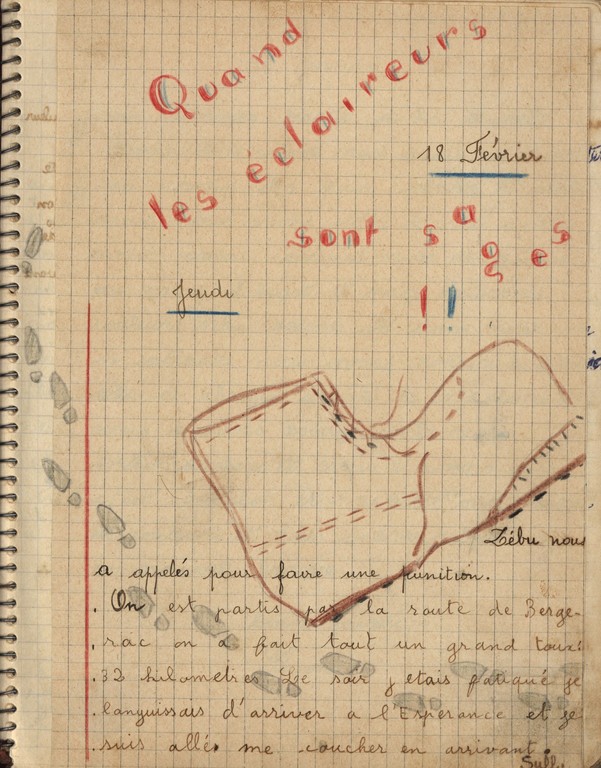 Quand
les éclaireurs
18 Février
sont sages
!!
Jeudi
Zébu nous
a appelés pour faire une punition.
On est partis par la route de Berge-
rac on a fait tout un grand tour:
32 kilometres Le soir j etais fatigué je
languissais d'arriver a l'Esperance et je
suis allé me coucher en arrivant.